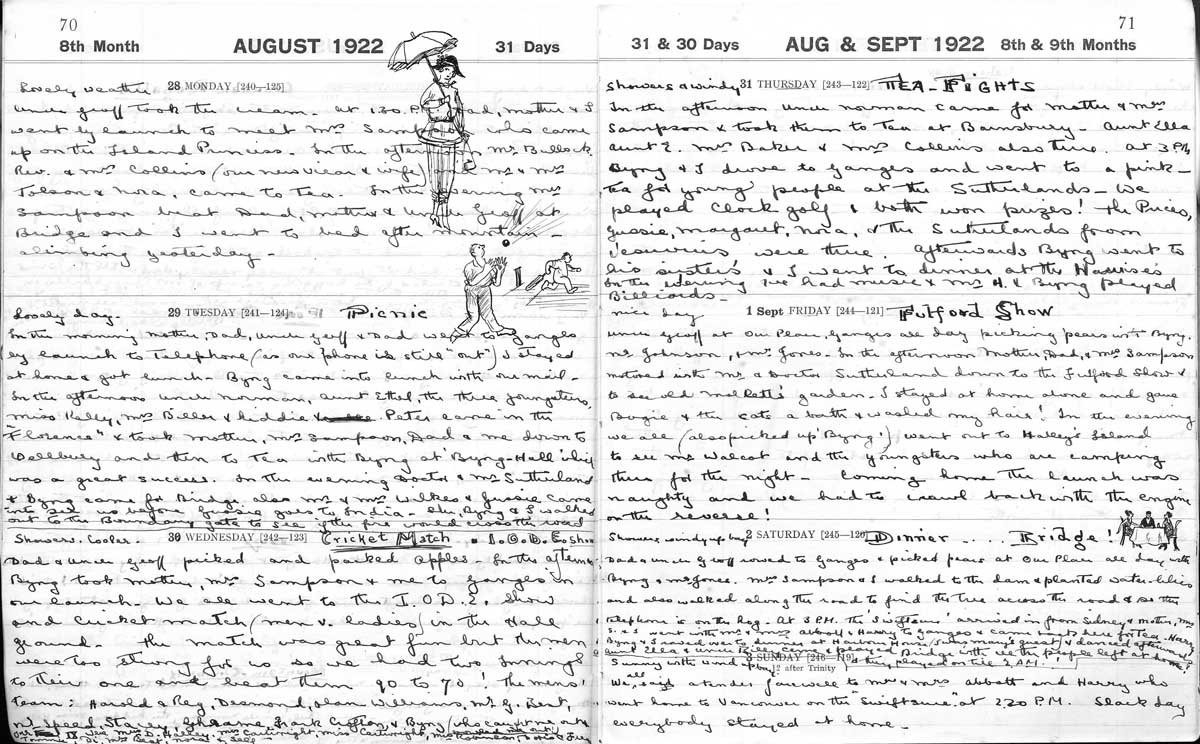 70
8th Month AUGUST 1922 31 Days
Lovely weather 28 MONDAY [240—125]
Uncle Geoff took the cream. At 1.30 P.M. Dad, mother & I
went by launch to meet Mrs Sampson who came
up on the Island Princess. In the afternoon Mr Bullock
Rev. & Mrs Collins (our new vicar & wife) & Mr & Mrs
Tolson & Nora, came to tea. In the evening Mrs
Sampson beat Dad, mother & Uncle Geoff at
Bridge and I went to bed after mountain-
climbing yesterday -
Lovely day - 29 TUESDAY [241—124] Picnic
In the morning mother, Dad, Uncle Geoff & Dad went to Ganges
by launch to telephone (as our 'phone is still "out") I stayed
at home & got lunch - Byng came into lunch with our mail -
In the afternoon Uncle Norman, Aunt Ethel, the three youngsters,
Miss Haley, Mrs Biller & kiddie Peter came in the
"Florence" & took mother, Mrs Sampson, Dad & me down to
Wellbury and then to Tea with Byng at Byng-Hall which
was a great success. In the evening Doctor & Mrs Sutherland
& Byng came for Bridge also Mr & Mrs Wilkes & Gussie came
into see us before Gussie goes to India - Byng & I walked
out to the Boundary gate to see if the fire would cross the road
Showers. Cooler. 30 WEDNESDAY [242—123] Cricket Match .. I.O.D.E. Show
Dad & Uncle Geoff picked and packed apples - In the afternoon
Byng took mother, Mrs Sampson & me to Ganges in
our launch - We all went to the I.O.D.E. Show
and Cricket match (men v. ladies) in the Hall
ground. The match was great fun but the men
were too strong for us so we had two innings
to their one and beat them 90 to 70! The mens'
team: Harold & Reg, Desmond, Alan Williams, Mr G. Best,
Mr Speed, Stacey, Graham, Frank Crofton, & Byng (who caught me out)
71
31 & 30 Days AUG & SEPT 1922 8th & 9th Months
Showers & windy 31 THURSDAY [243—122] TEA-FIGHTS
In the afternoon Uncle Norman came for mother & Mrs
Sampson & took them to Tea at Barnsbury - Aunt Ella
Aunt E. Mrs Baker & Mrs Collins also there. At 3 P.M.
Byng & I drove to Ganges and went to a pink-
tea for young people at the Sutherlands - We
played Clock golf & both won prizes! The Prices,
Gussie, Margaret, Nora, & the Sutherlands from
Vesuvius were there. Afterwards Byng went to
his sister's & I went to dinner at the Harrises
In the evening we had music & Mr H. & Byng played
Billiards -
nice day 1 Sept FRIDAY [244—121] Fulford Show
Uncle Geoff at Our Place, Ganges all day picking pears with Byng,
Mr Johnson, & Mr Jones. In the afternoon Mother, Dad, & Mrs Sampson
motored with Mr & Doctor Sutherland down to the Fulford Show &
to see old Mollett's garden - I stayed at home alone and gave
Bogie & the cats a bath & washed my hair! In the evening
we all (also picked up Byng!) went out to Hawley's Island
to see Mr Walcot and the youngsters who are camping
there for the night - Coming home the launch was
naughty and we had to crawl back with the engine
on the reverse!
Showers, windy up by 2 SATURDAY [245—120] Dinner ... Bridge!
Dad & Uncle Geoff rowed to Ganges & picked pears at Our Place all day with
Byng & Mr Jones. Mrs Sampson & I walked to the dam & planted water-lilies
and also walked along the road to find the tree across the road & so the
telephone is on the hog. At 3 P.M. the 'Swiftsure' arrived in from Sidney & mother, Mrs
S. & I went with Mr & Mrs Abbott & Harry to Ganges & came back here for tea. Harry,
Byng & I went to dinner at Harrises & danced afterward
Aunt Ella & Uncle Biller came & played Bridge with all the people left at home!
3 SUNDAY [246—119] & they played on till 2 A.M.!
Sunny with wind 12 after Trinity
We all said a tender farewell to Mr & Mrs Abbott and Harry who
went home to Vancouver on the "Swiftsure" at 2.30 P.M. Slack day
everybody stayed at home -